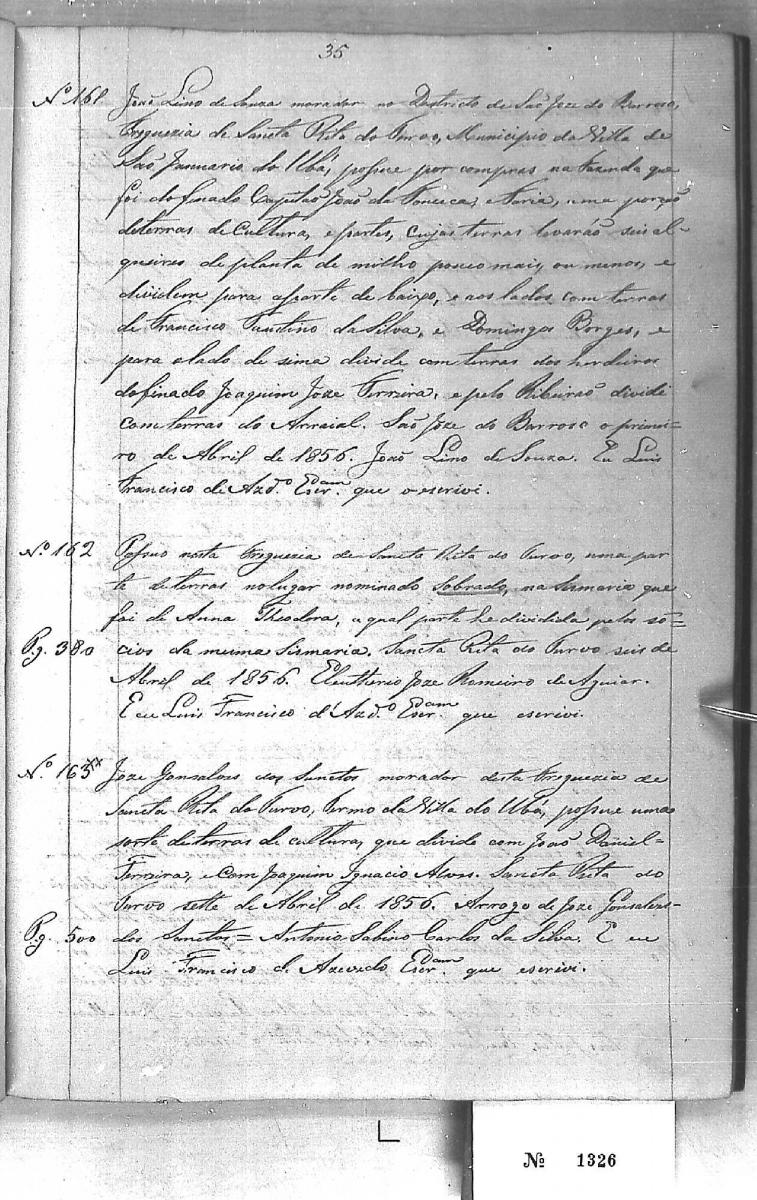 35
Nº 161 João Lino de Souza morador no Destricto de São Joze do Barroso,
Freguezia de Sancta Rita do Turvo, Municipio da Villa de
São Januario do Ubá, possue por compras na Fazenda que
foi do finado Capitão João da Fonceca, e Faria, uma porção
de terras de Cultura, e partes, cujas terras levarão seis al-
queires de planta de milho pouco mais, ou menos, e
dividem para aparte de baixo, e aos lados com terras
de Francisco Faustino da Silva, e Domingos Borges, e
para o lado de sima divide com terras dos herdeiros
do finado Joaquim Joze Ferreira, e pelo Ribeirão divide
com terras do Arraial. São Joze do Barroso o primei-
ro de Abril de 1856. João Lino de Souza. Eu Luis
Francisco de Azdº Escram que o escrivi.
Nº 162 Possuo nesta Freguezia de Sancta Rita do Turvo, uma par
te de terras no lugar nominado Sobrado, na Sismaria que
foi de Anna Theodora, a qual parte he dividida pelos só=
Pg. 380 cios da mesma Sismaria. Sancta Rita do Turvo seis de
Abril de 1856. Eleutherio Joze Romeiro de Aguiar.
E eu Luis Francisco d'Azdº Escram que escrivi.
Nº 163 Joze Gonsalves dos Sanctos morador desta Freguezia de
Sancta Rita do Turvo, Termo da Villa do Ubá, possue uma
sorte de terras de cultura, que divide com João Daniel=
Ferreira, e com Joaquim Ignacio Alves. Sancta Rita do
Turvo sette de Abril de 1856. Arrogo de Joze Gonsalves=
Pg. 500 dos Sanctos = Antonio Sabino Carlos da Silva. E eu
Luis Francisco d' Azevedo Escram que escrivi.
Nº 1326